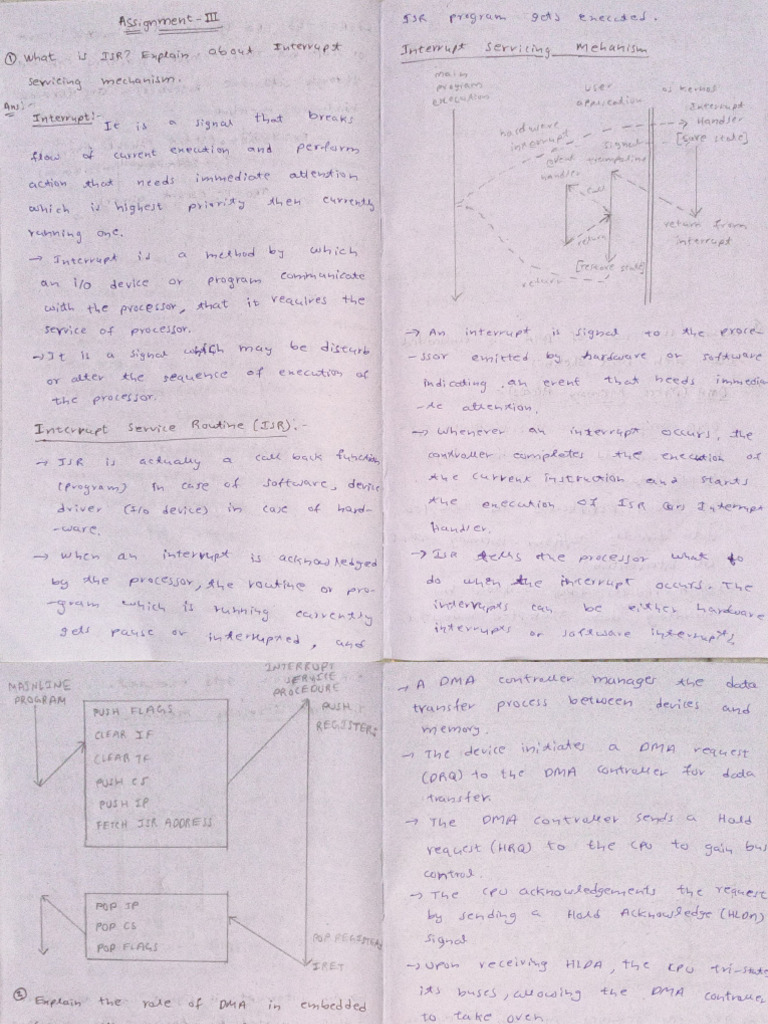 Assignment-III
① What is ISR? Explain about Interrupt
servicing mechanism.
Ans:-
Interrupt:- It is a signal that breaks
flow of current execution and perform
action that needs immediate attention
which is highest priority then currently
running one.
→ Interrupt is a method by which
an i/o device or program communicate
with the processor, that it requires the
service of processor.
→ It is a signal which may be disturb
or alter the sequence of execution of
the processor.
Interrupt Service Routine (ISR):-
→ ISR is actually a call back function
(program) in case of software, device
driver (I/o device) in case of hard-
-ware.
→ When an interrupt is acknowledged
by the processor, the routine or pro-
-gram which is running currently
gets pause or interrupted, and
ISR program gets executed.
Interrupt Servicing Mehanism
main
program
execution
user
application
os kernal
Interrupt
Handler
[save state]
hardware
interrupt
event
handler
signal
call
return
[restore state]
return
return from
interrupt
→ An interrupt is signal to the proce-
-ssor emitted by hardware or software
indicating an event that needs immedia-
-te attention.
→ Whenever an interrupt occurs, the
controller completes the execution of
the current instruction and starts
the execution of ISR (or) Interrupt
Handler.
→ ISR tells the processor what to
do when the interrupt occurs. The
interrupts can be either hardware
interrupts or software interrupts.
MAINLINE
PROGRAM
PUSH FLAGS
CLEAR IF
CLEAR TF
PUSH CS
PUSH IP
FETCH ISR ADDRESS
INTERRUPT
SERVICE
PROCEDURE
PUSH
REGISTERS
POP IP
POP CS
POP FLAGS
POP REGISTERS
IRET
② Explain the role of DMA in embedded
→ A DMA controller manages the data
transfer process between devices and
memory.
→ The device initiates a DMA request
(DRQ) to the DMA controller for data
transfer.
→ The DMA controller sends a Hold
request (HRQ) to the CPU to gain bus
control.
→ The CPU acknowledgements the request
by sending a Hold Acknowledge (HLDA)
signal
→ Upon receiving HLDA, the CPU tri-state
its buses, allowing the DMA controller
to take over.